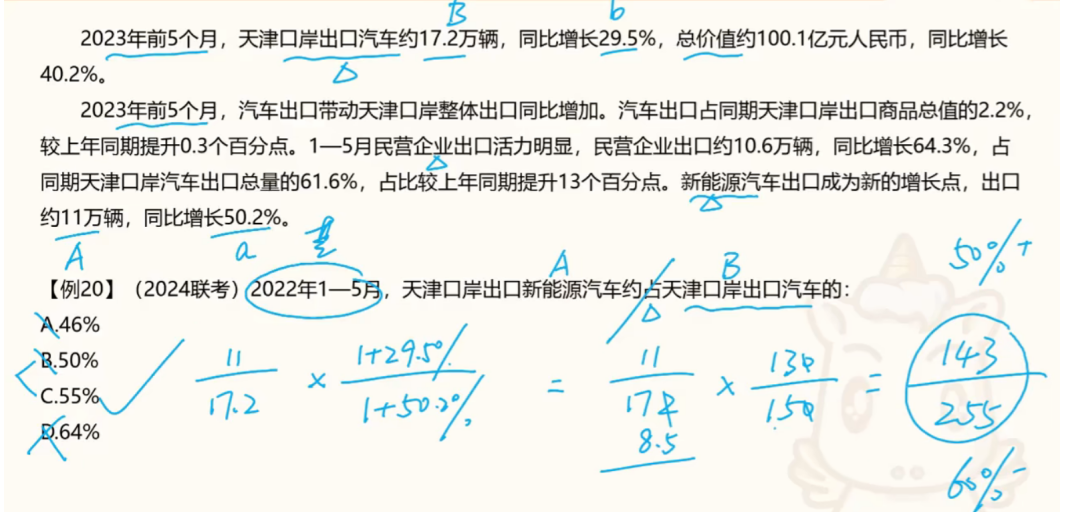 B b
2023年前5个月，天津口岸出口汽车约17.2万辆，同比增长29.5%，总价值约100.1亿元人民币，同比增长
40.2%。
2023年前5个月，汽车出口带动天津口岸整体出口同比增加。汽车出口占同期天津口岸出口商品总值的2.2%，
较上年同期提升0.3个百分点。1—5月民营企业出口活力明显，民营企业出口约10.6万辆，同比增长64.3%，占
同期天津口岸汽车出口总量的61.6%，占比较上年同期提升13个百分点。新能源汽车出口成为新的增长点，出口
约11万辆，同比增长50.2%。
A a A B 50%+
【例20】（2024联考）2022年1—5月，天津口岸出口新能源汽车约占天津口岸出口汽车的：
A.46%
B.50%
C.55%
D.64%
11/17.2 × 1+29.5%/1+50.2% = 11/17 × 130/150 = 143/255
8.5
60%-